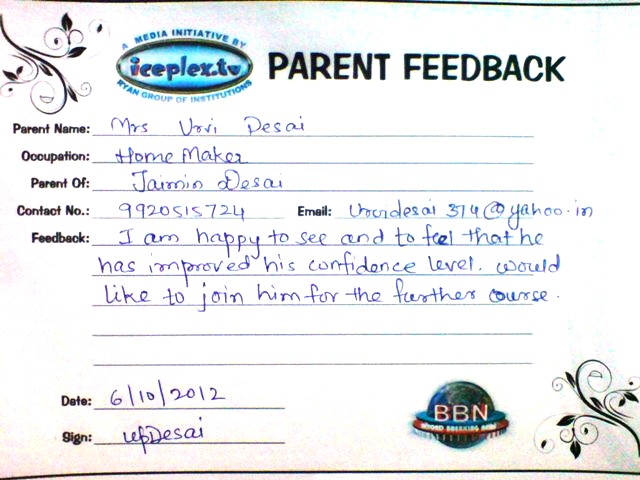 A MEDIA INITIATIVE BY
iceplex.tv
RYAN GROUP OF INSTITUTIONS
PARENT FEEDBACK
Parent Name: Mrs Urvi Desai
Occupation: Home Maker
Parent Of: Jaimin Desai
Contact No.: 9920515724 Email: Urvidesai374@yahoo.in
Feedback: I am happy to see and to feel that he
has improved his confidence level. would
like to join him for the further course.
Date: 6/10/2012
Sign: Desai
BBN
BEYOND BREAKING NEWS